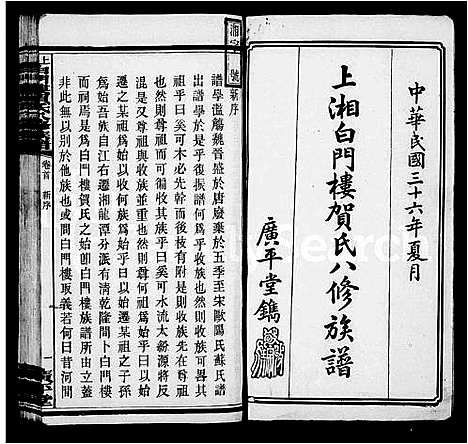 中華民國三十六年夏月
上湘白門樓賀氏八修族譜
廣平堂鐫
新序
譜學濫觴魏晉盛於唐廢棄於五季至宋歐陽氏蘇氏譜
出譜學於是乎復振譜何以學名則尊祖收族可畏其
祖乎曰奚可木必先幹而後枝有附是則收族先在尊祖
也然則尊祖可不收族乎曰奚可水流太紛源將為
混是又尊祖與收族並重也然則尊何祖為始曰尊始
遷之某祖為始以收何族為始曰以始遷某祖之子孫
為始吾族自江右遷湘龍潭分派有清乾隆間卜白門樓
而祠焉是為白門樓賀氏之始卽白門樓族譜所由立蓋
非此無以別於他族也或曰白門樓取義若何曰昔河間
卷首
新序
一